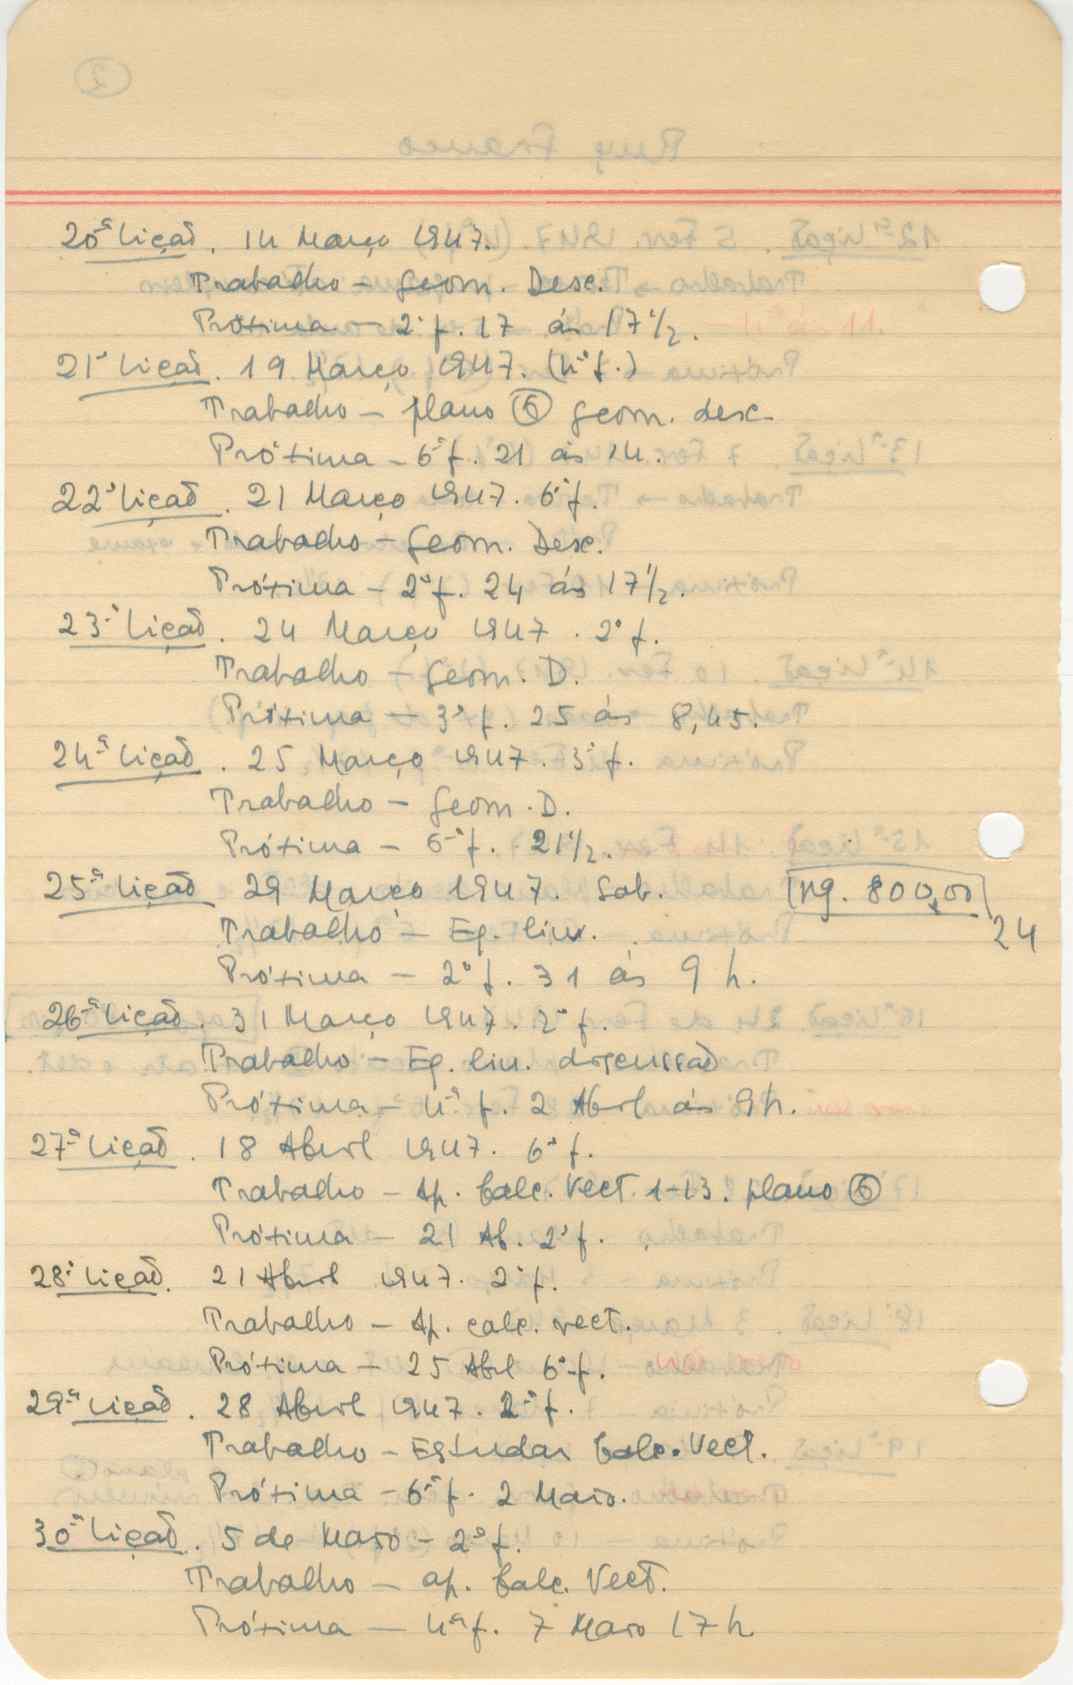 20ª Lição. 14 Março 1947.
Trabalho – Geom. Desc.
Próxima – 2ª f. 17 ás 17 1/2.
21ª Lição. 19 Março 1947. (4ª f.)
Trabalho – plano ⑥ geom. desc.
Próxima – 6ª f. 21 ás 14.
22ª Lição. 21 Março 1947. 6ª f.
Trabalho – Geom. Desc.
Próxima – 2ª f. 24 ás 17 1/2.
23ª Lição. 24 Março 1947. 2ª f.
Trabalho – Geom. D.
Próxima – 3ª f. 25 ás 8,45.
24ª Lição. 25 Março 1947. 3ª f.
Trabalho – Geom. D.
Próxima – 6ª f. 21 1/2.
25ª Lição 29 Março 1947. Sab. pg. 800,00
24
Trabalho – Eq. lin.
Próxima – 2ª f. 31 ás 9 h.
26ª Lição. 31 Março 1947. 2ª f.
Trabalho – Eq. lin. discussão
Próxima – 4ª f. 2 Abril ás 9h.
27ª Lição. 18 Abril 1947. 6ª f.
Trabalho – Ap. Calc. Vect. 1-13. plano ⑥
Próxima – 21 Ab. 2ª f.
28ª Lição. 21 Abril 1947. 2ª f.
Trabalho – Ap. calc. vect.
Próxima – 25 Abril 6ª f.
29ª Lição. 28 Abril 1947. 2ª f.
Trabalho – Estudar Calc. Vect.
Próxima – 6ª f. 2 Maio.
30ª Lição. 5 de Maio – 2ª f.
Trabalho – ap. Calc. Vect.
Próxima – 4ª f. 7 Maio 17 h